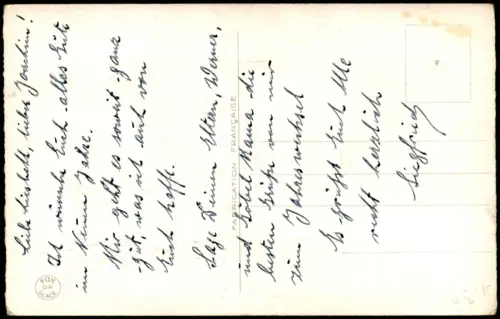 Liebe Liesbeth, lieber Joachim!
Ich wünsche Euch alles Gute
im Neuen Jahre.
Mir geht es soweit ganz
gut, was ich auch von
Euch hoffe.
Sage Deinen Eltern, Werner,
und Mama die
besten Grüße von mir
zum Jahreswechsel
Es grüßt Euch Alle
recht herzlich
Siegfried
FABRICATION FRANÇAISE